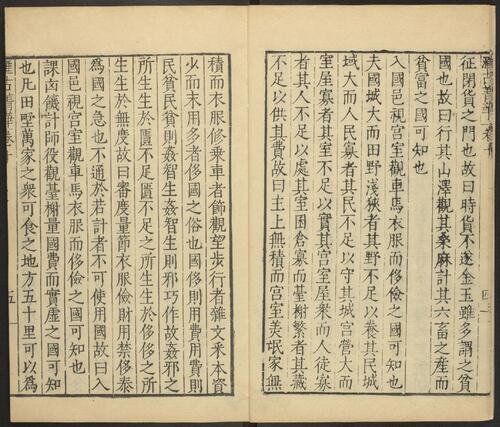 征閉貨之門也故曰時貨不遂金玉雖多謂之貧
國也故曰行其山澤觀其桑麻計其六畜之產而
貧富之國可知也
入國邑視宮室觀車馬衣服而侈儉之國可知也
夫國城大而田野淺狹者其野不足以養其民城
域大而人民寡者其民不足以守其城宮營大而
室屋寡者其室不足以實其宮室屋衆而人徒寡
者其人不足以處其室囷倉寡而臺榭繁者其藏
不足以供其費故曰主上無積而宮室美氓家無
積而衣服修乗車者飾觀望步行者雜文采本資
少而末用多者侈國之俗也國侈則用費用費則
民貧民貧則姦智生姦智生則邪巧作故姦邪之
所生生於匱不足匱不足之所生生於侈侈之所
生生於無度故曰審度量節衣服儉財用禁侈泰
為國之急也不通於若計者不可使用國故曰入
國邑視宮室觀車馬衣服而侈儉之國可知也
課凶饑計師役觀臺榭量國費而實虛之國可知
也凡田墅萬家之衆可食之地方五十里可以為
五